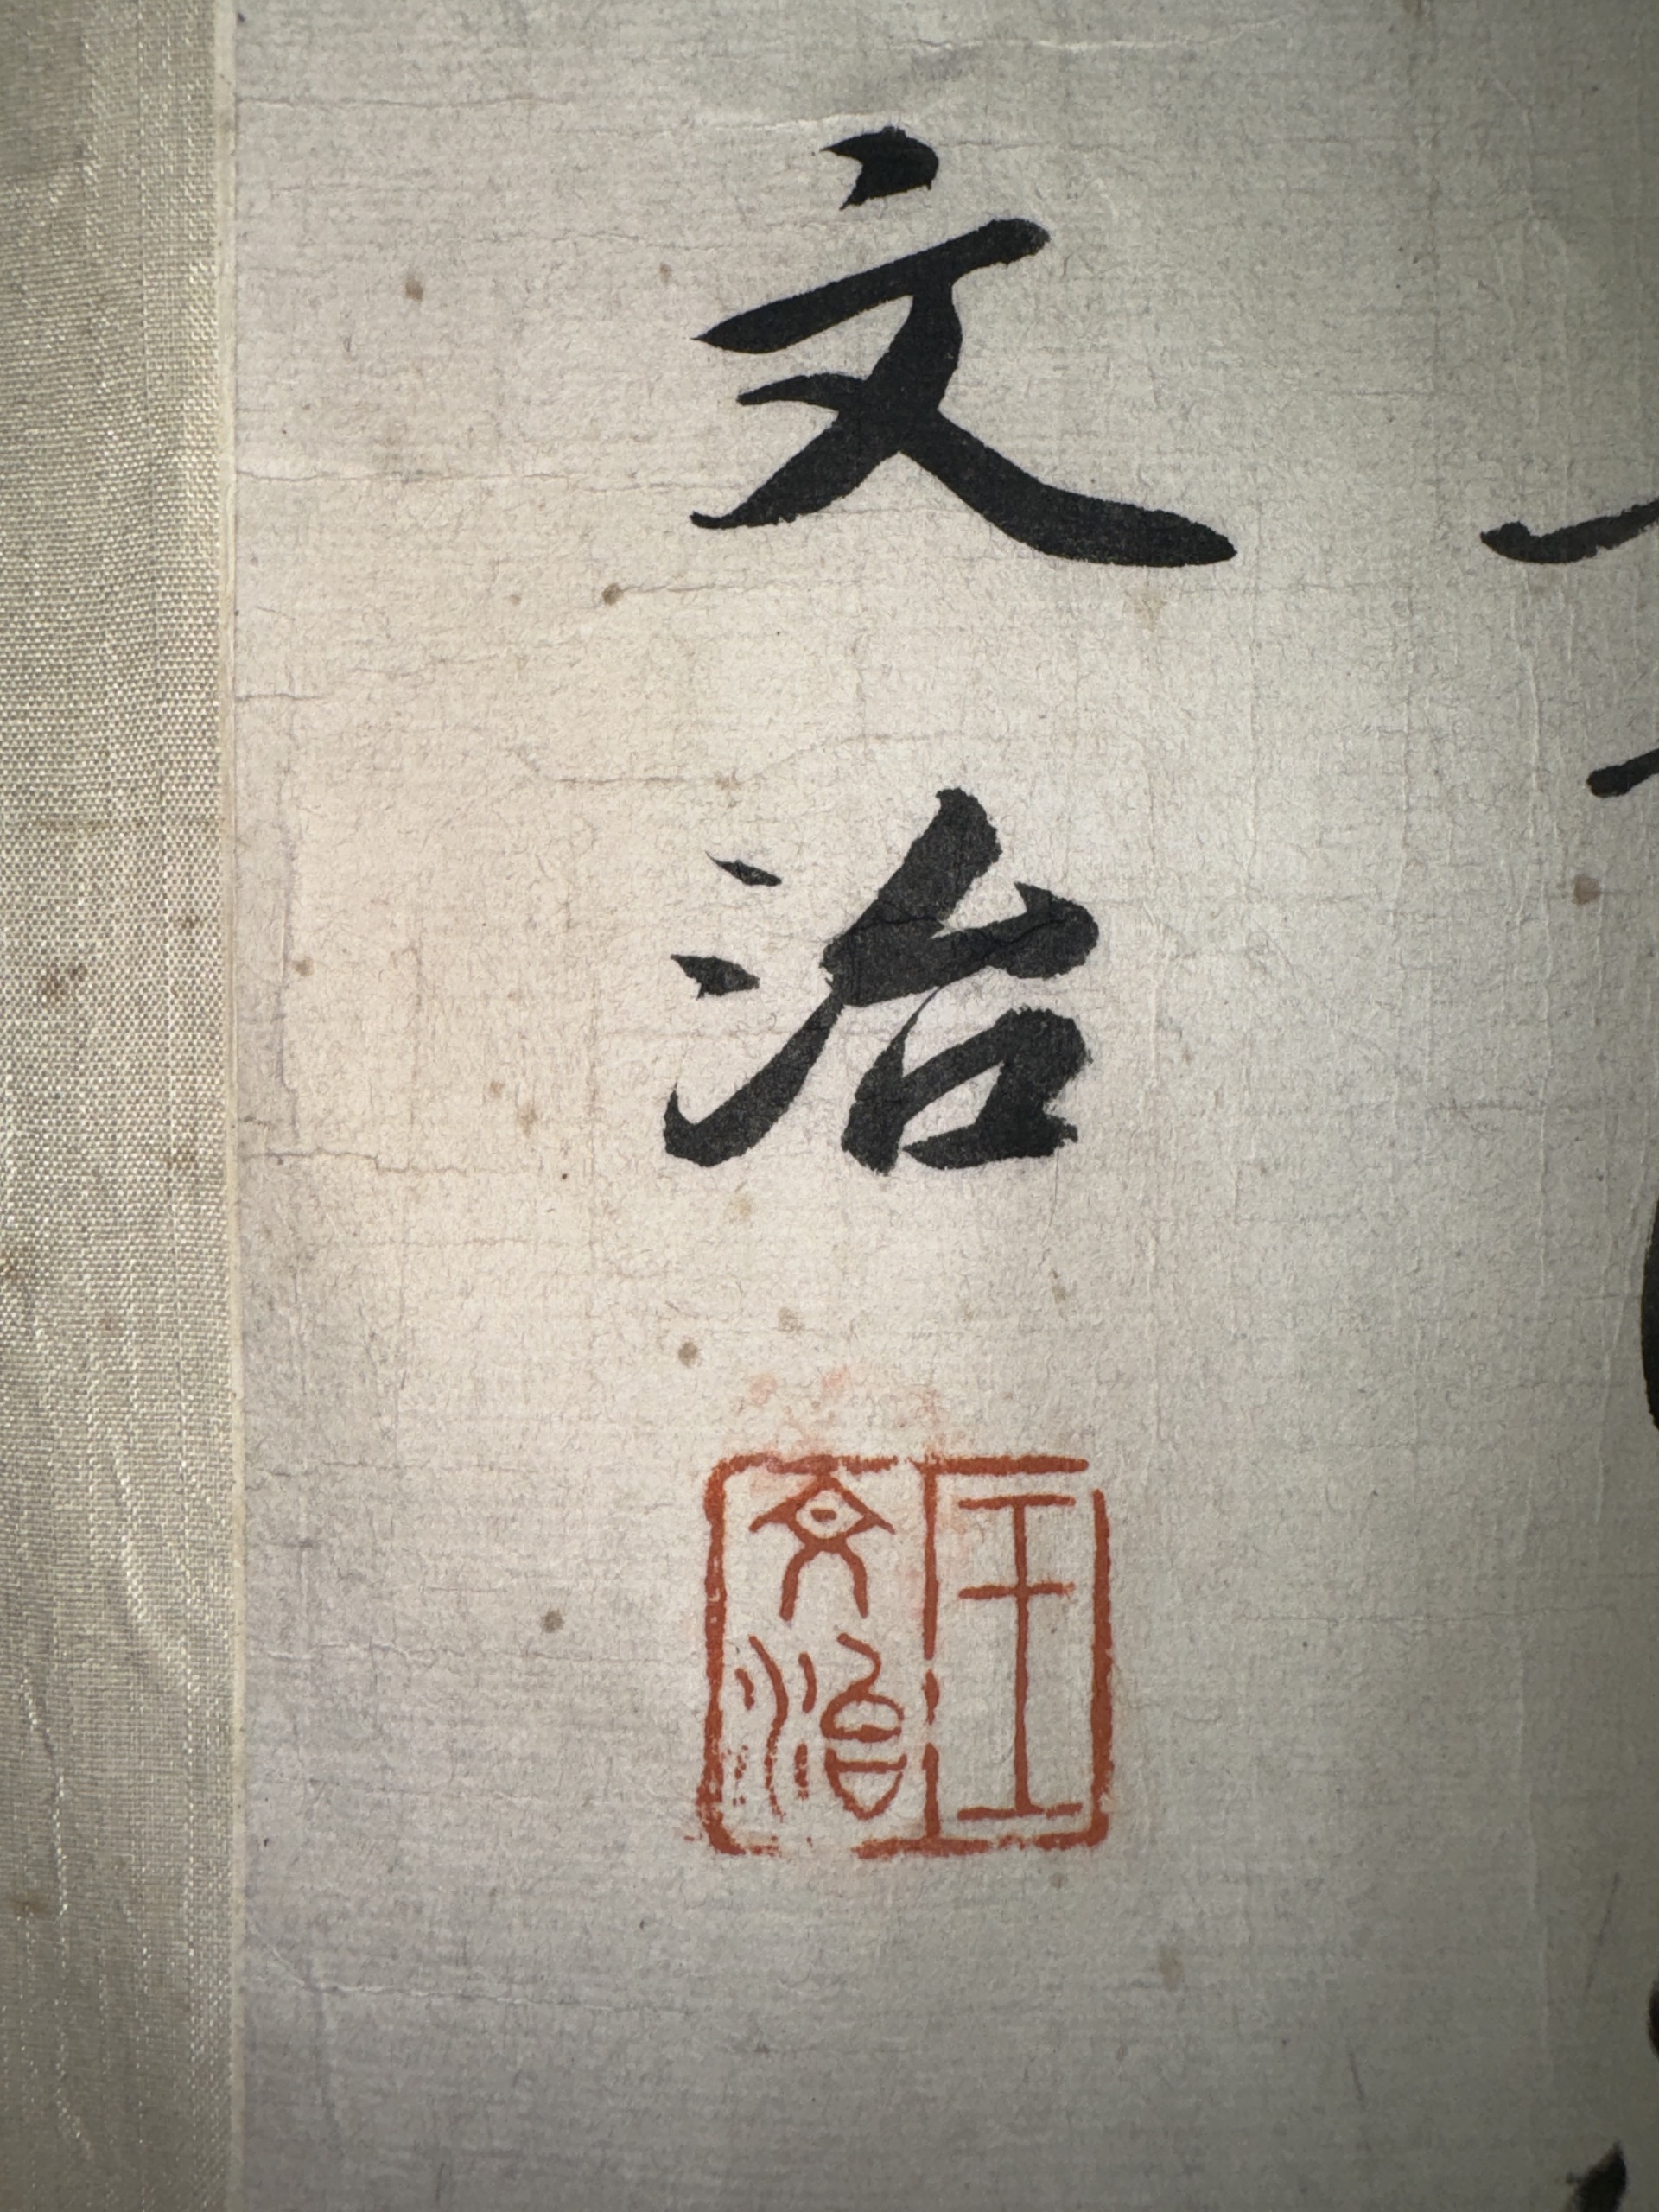 文治
王文治